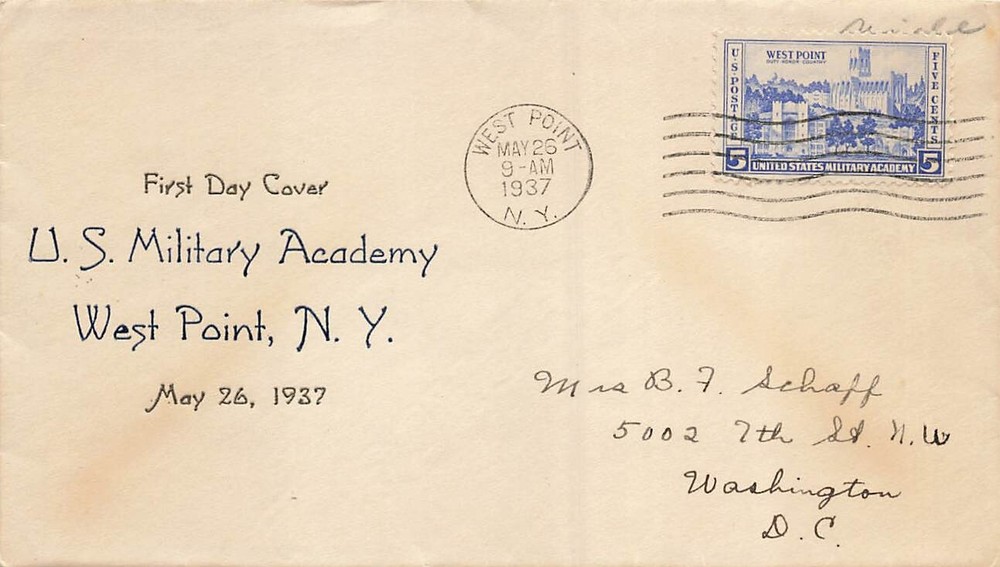 First Day Cover
U. S. Military Academy
West Point, N. Y.
May 26, 1937
WEST POINT
MAY 26
9-AM
1937
N. Y.
WEST POINT
DUTY HONOR COUNTRY
U.S. POSTAGE
FIVE CENTS
5 UNITED STATES MILITARY ACADEMY 5
Mrs B. F. Schaff
5002 7th St. N.W
Washington
D. C.